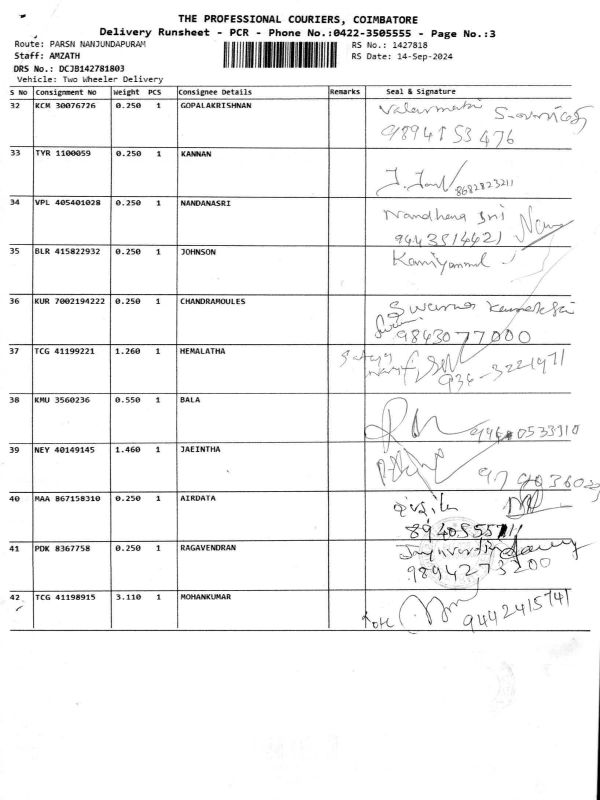 THE PROFESSIONAL COURIERS, COIMBATORE
Delivery Runsheet - PCR - Phone No.:0422-3505555 - Page No.:3
Route: PARSN NANJUNDAPURAM
RS No.: 1427818
Staff: AMZATH
RS Date: 14-Sep-2024
DRS No.: DCJB142781803
Vehicle: Two Wheeler Delivery
S No Consignment No Weight PCS Consignee Details Remarks Seal & Signature
32 KCM 30076726 0.250 1 GOPALAKRISHNAN
Valarmathi
9894153476
33 TYR 1100059 0.250 1 KANNAN
8682823211
34 VPL 405401028 0.250 1 NANDANASRI Nandhana Sri
9443514421
35 BLR 415822932 0.250 1 JOHNSON Kaniyammal
36 KUR 7002194222 0.250 1 CHANDRAMOULES Swarna
9843077000
37 TCG 41199221 1.260 1 HEMALATHA
934-3221971
38 KMU 3560236 0.550 1 BALA
0533910
39 NEY 40149145 1.460 1 JAEINTHA
40 MAA 867158310 0.250 1 AIRDATA
41 PDK 8367758 0.250 1 RAGAVENDRAN
9894273200
42 TCG 41198915 3.110 1 MOHANKUMAR
9442415741